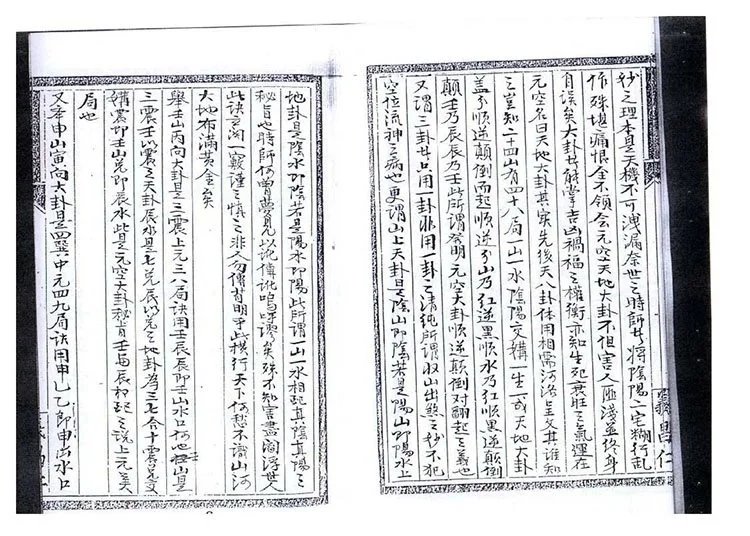 妙之理本是天機不可洩漏奈世之時師廿將陰陽二宅糊行乱
作殊堪痛恨全不領会元空天地大卦不但害人匪浅並终身
自誤矣大卦廿能掌吉凶禍福之權衡亦知生死衰旺之氣運在
元空名曰天地大卦其实先後天八卦体用相需河洛呈文其谁知
之豈知二十四山有四十八局一山一水陰陽交媾一生一成天地大卦
盖分順逆顛倒而起順逆分山乃红逆黑順水乃红順黑逆顛倒
顛壬乃辰辰乃壬此所謂發明元空大卦順逆顛倒对翻起之義也
又謂三卦廿只用一卦非用一卦之清纯所謂收山出煞之妙不犯
空位流神之病也更謂山上天卦是陰山即陰若是陽山即陽水上
地卦是陰水即陰若是陽水即陽此所謂一山一水相配真陰真陽之
秘旨也時師何曾夢見以訛傳訛嗚呼謬矣殊不知言盡阎浮世人
此訣言阎一竅謹之慎之非人勿傳苟明乎此横行天下何愁不謂山河
大地布滿黄金矣
舉壬山丙向大卦是三震上元三八局訣用壬辰辰即壬山水口何也壬山是
三震壬以震之天卦辰水是七兑辰以兑之地卦為三七合十震兑交
媾震即壬山兑即辰水此是元空大卦秘旨壬与辰相配之說上元美
局也
又本申山寅向大卦是四巽中元四九局訣用申乙乙即申山水口